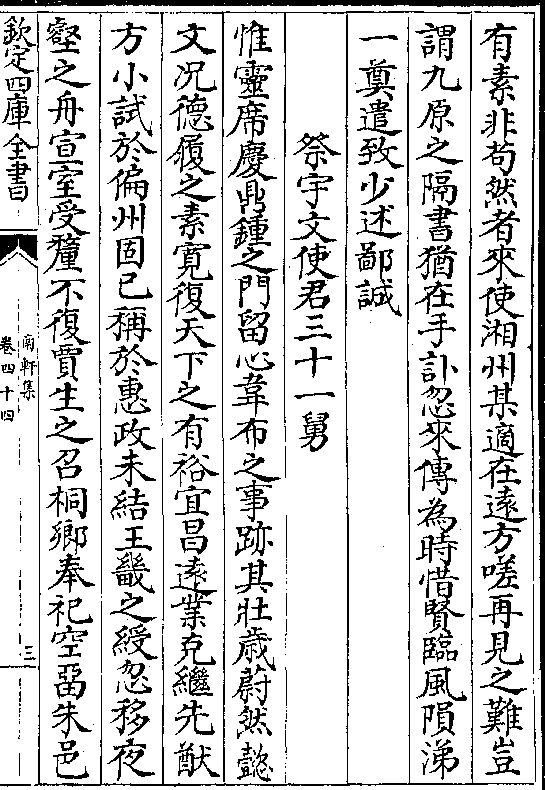 有素非苟然者來使湘州某適在遠方嗟再見之難豈
謂九原之隔書猶在手訃忽來傳為時惜賢臨風隕涕
一奠遣致少述鄙誠
祭宇文使君三十一舅
惟靈席慶鼎鍾之門留心韋布之事跡其壯歲蔚然懿
文况德履之素寛復天下之有裕宜昌遠業克繼先猷
方小試於偏州固已稱於惠政未結王畿之綬忽移夜
壑之舟宣室受釐不復賈生之召桐鄉奉祀空留朱邑
欽定四庫全書
南軒集
卷四十四
三